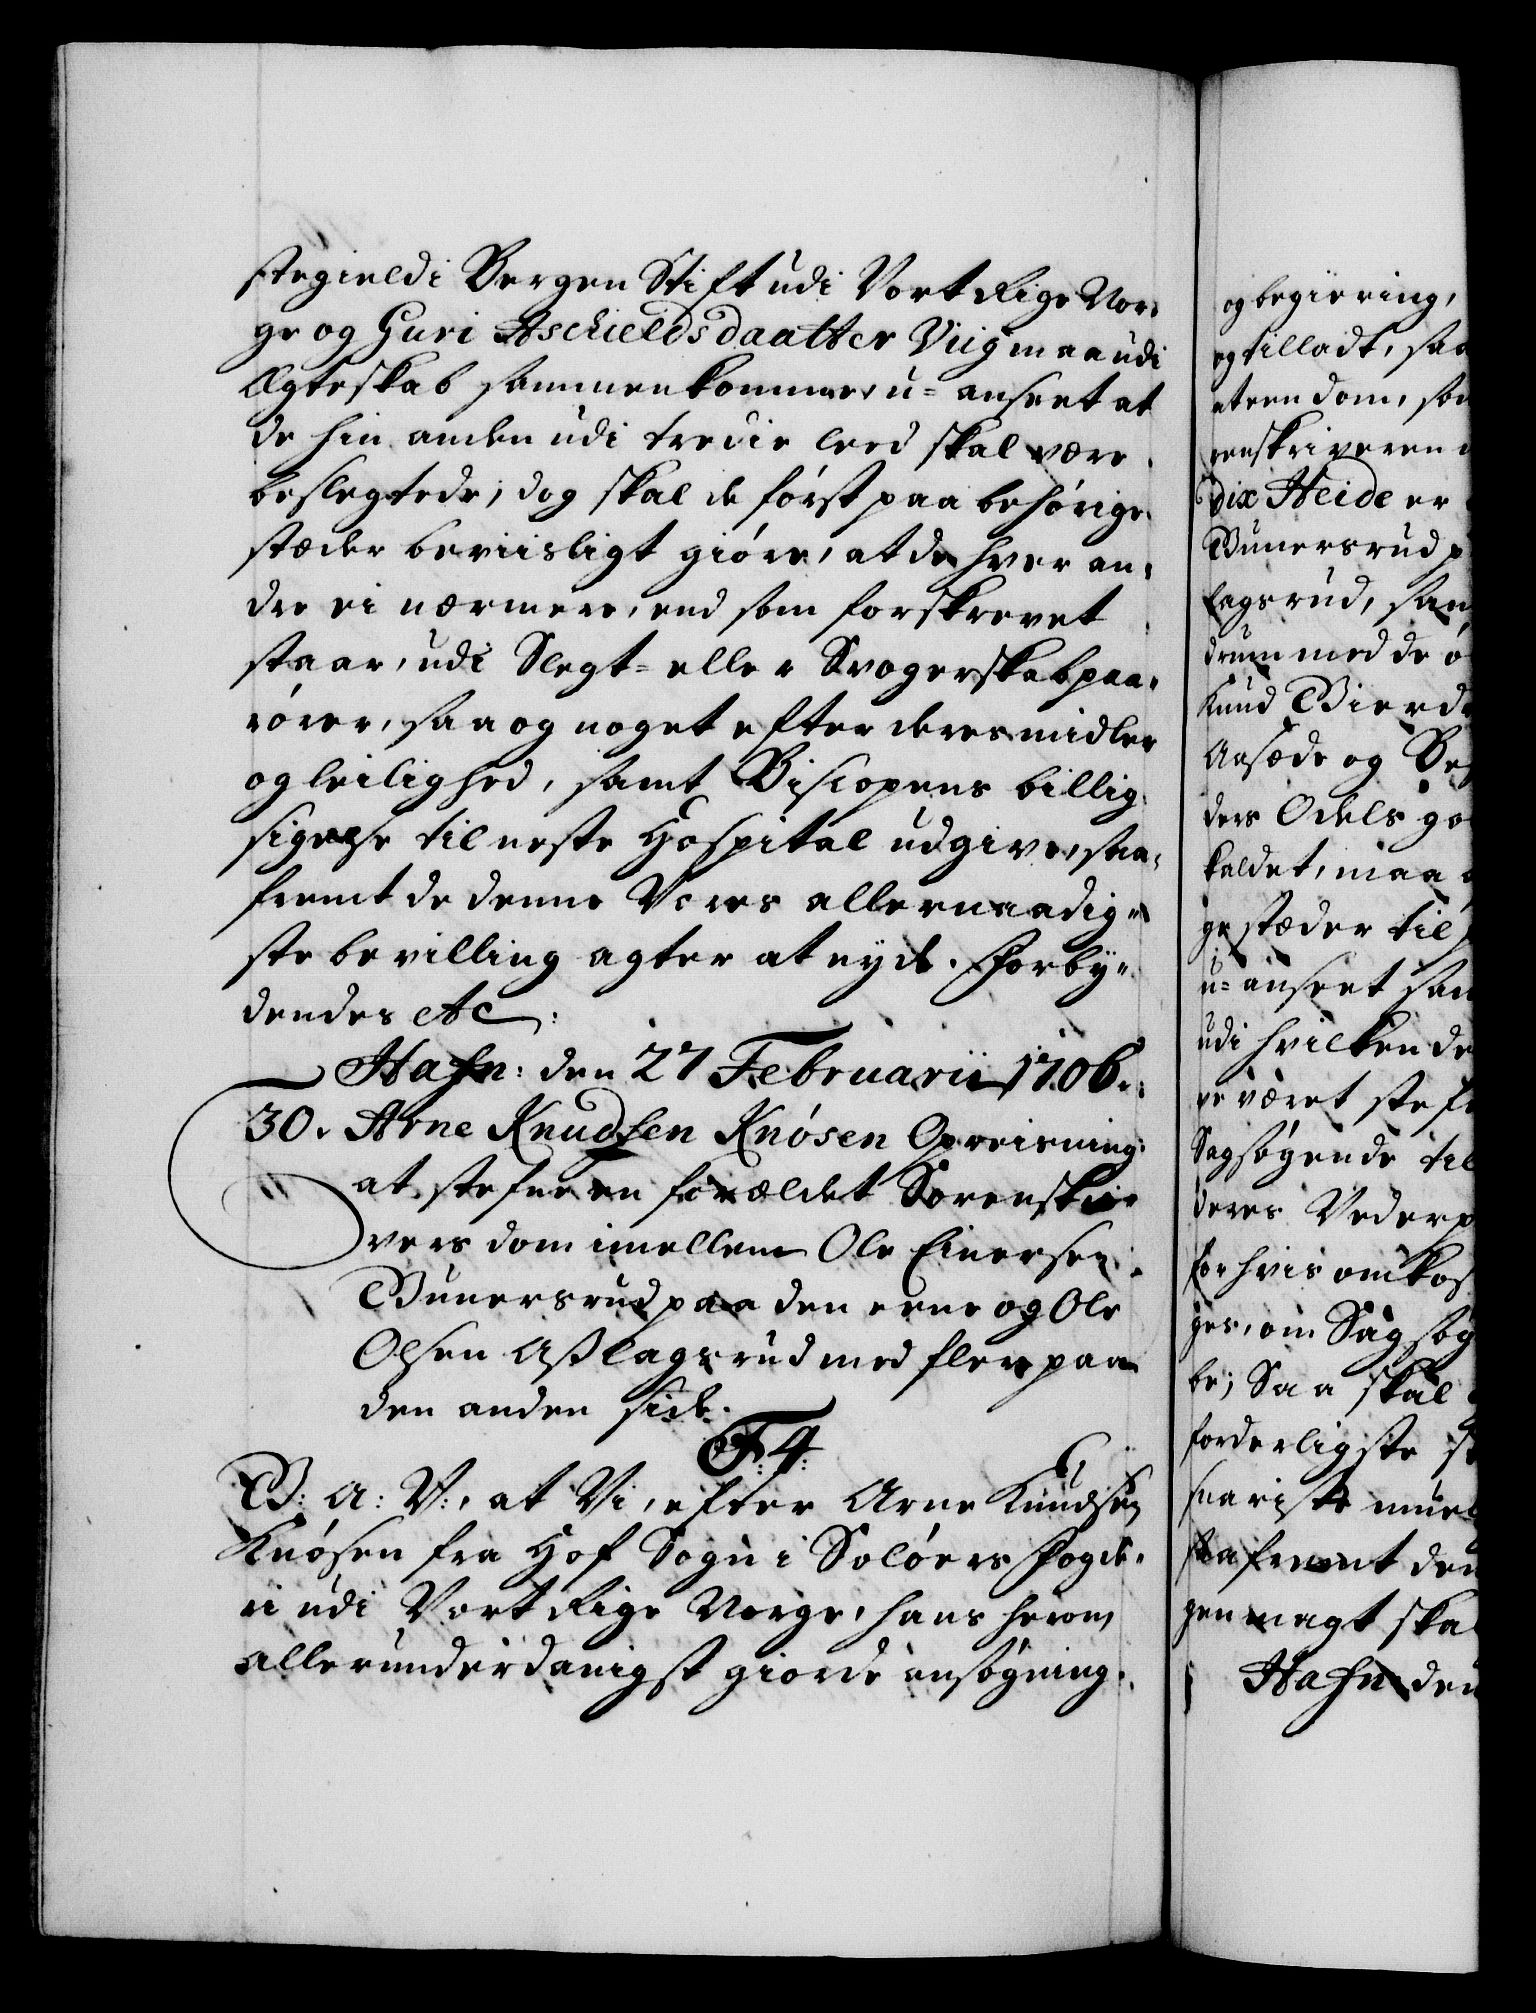 stegield i Bergen Stift udi Vort Rige Nor-
ge og Guri Aschieldsdaatter Viig maa udi
Ægteskab sammenkomme, u-anseet at
de hin anden udi tredie leed skal være
beslegtede; dog skal de først paa behørige
stæder beviisligt giøre, at de hver an-
dre ei nærmere, end som forskrevet
staar, udi Slegt- eller Svogerskab paa-
rører, saa og noget efter deres midler
og leilighed, samt Biscopens billig
sigelse til neste Hospital udgive, saa-
fremt de denne Vores allernaadig-
ste bevilling agter at nyde. Forby-
dendes etc:
Hafn: den 27 Februarii 1706.
30. Arne Knudsen Knøsen Opreisning
at stefne en forældet Sorenskri-
vers dom imellem Ole Einersen
Bunersrud paa den eene og Ole
Olsen Aslagsrud med flere paa
den anden side.
F: 4:
G: A: V:, at Vi, efter Arne Knudsen
Knøsen fra Hof Sogn i Soløers Fogde-
ri udi Vort Rige Norge, hans herom
allerunderdanigst giorde ansøgning
og begiering,
og tilladt, saa
at een dom, som
renskriveren
dix Heide er
Bunersrud p
lagsrud, sam
drum med de ø
Knud Bierd
Aasæde og Be
ders Odels go
kaldet, maa
ge stæder til
u-anseet saa
udi hvilken de
ve været stef
Sagsøgende til
deres Vederp
for hvis omkos
ges, om Sagsøg
be; Saa skal
forderligste
snariste mue
saafremt den
gen magt ska
Hafn den